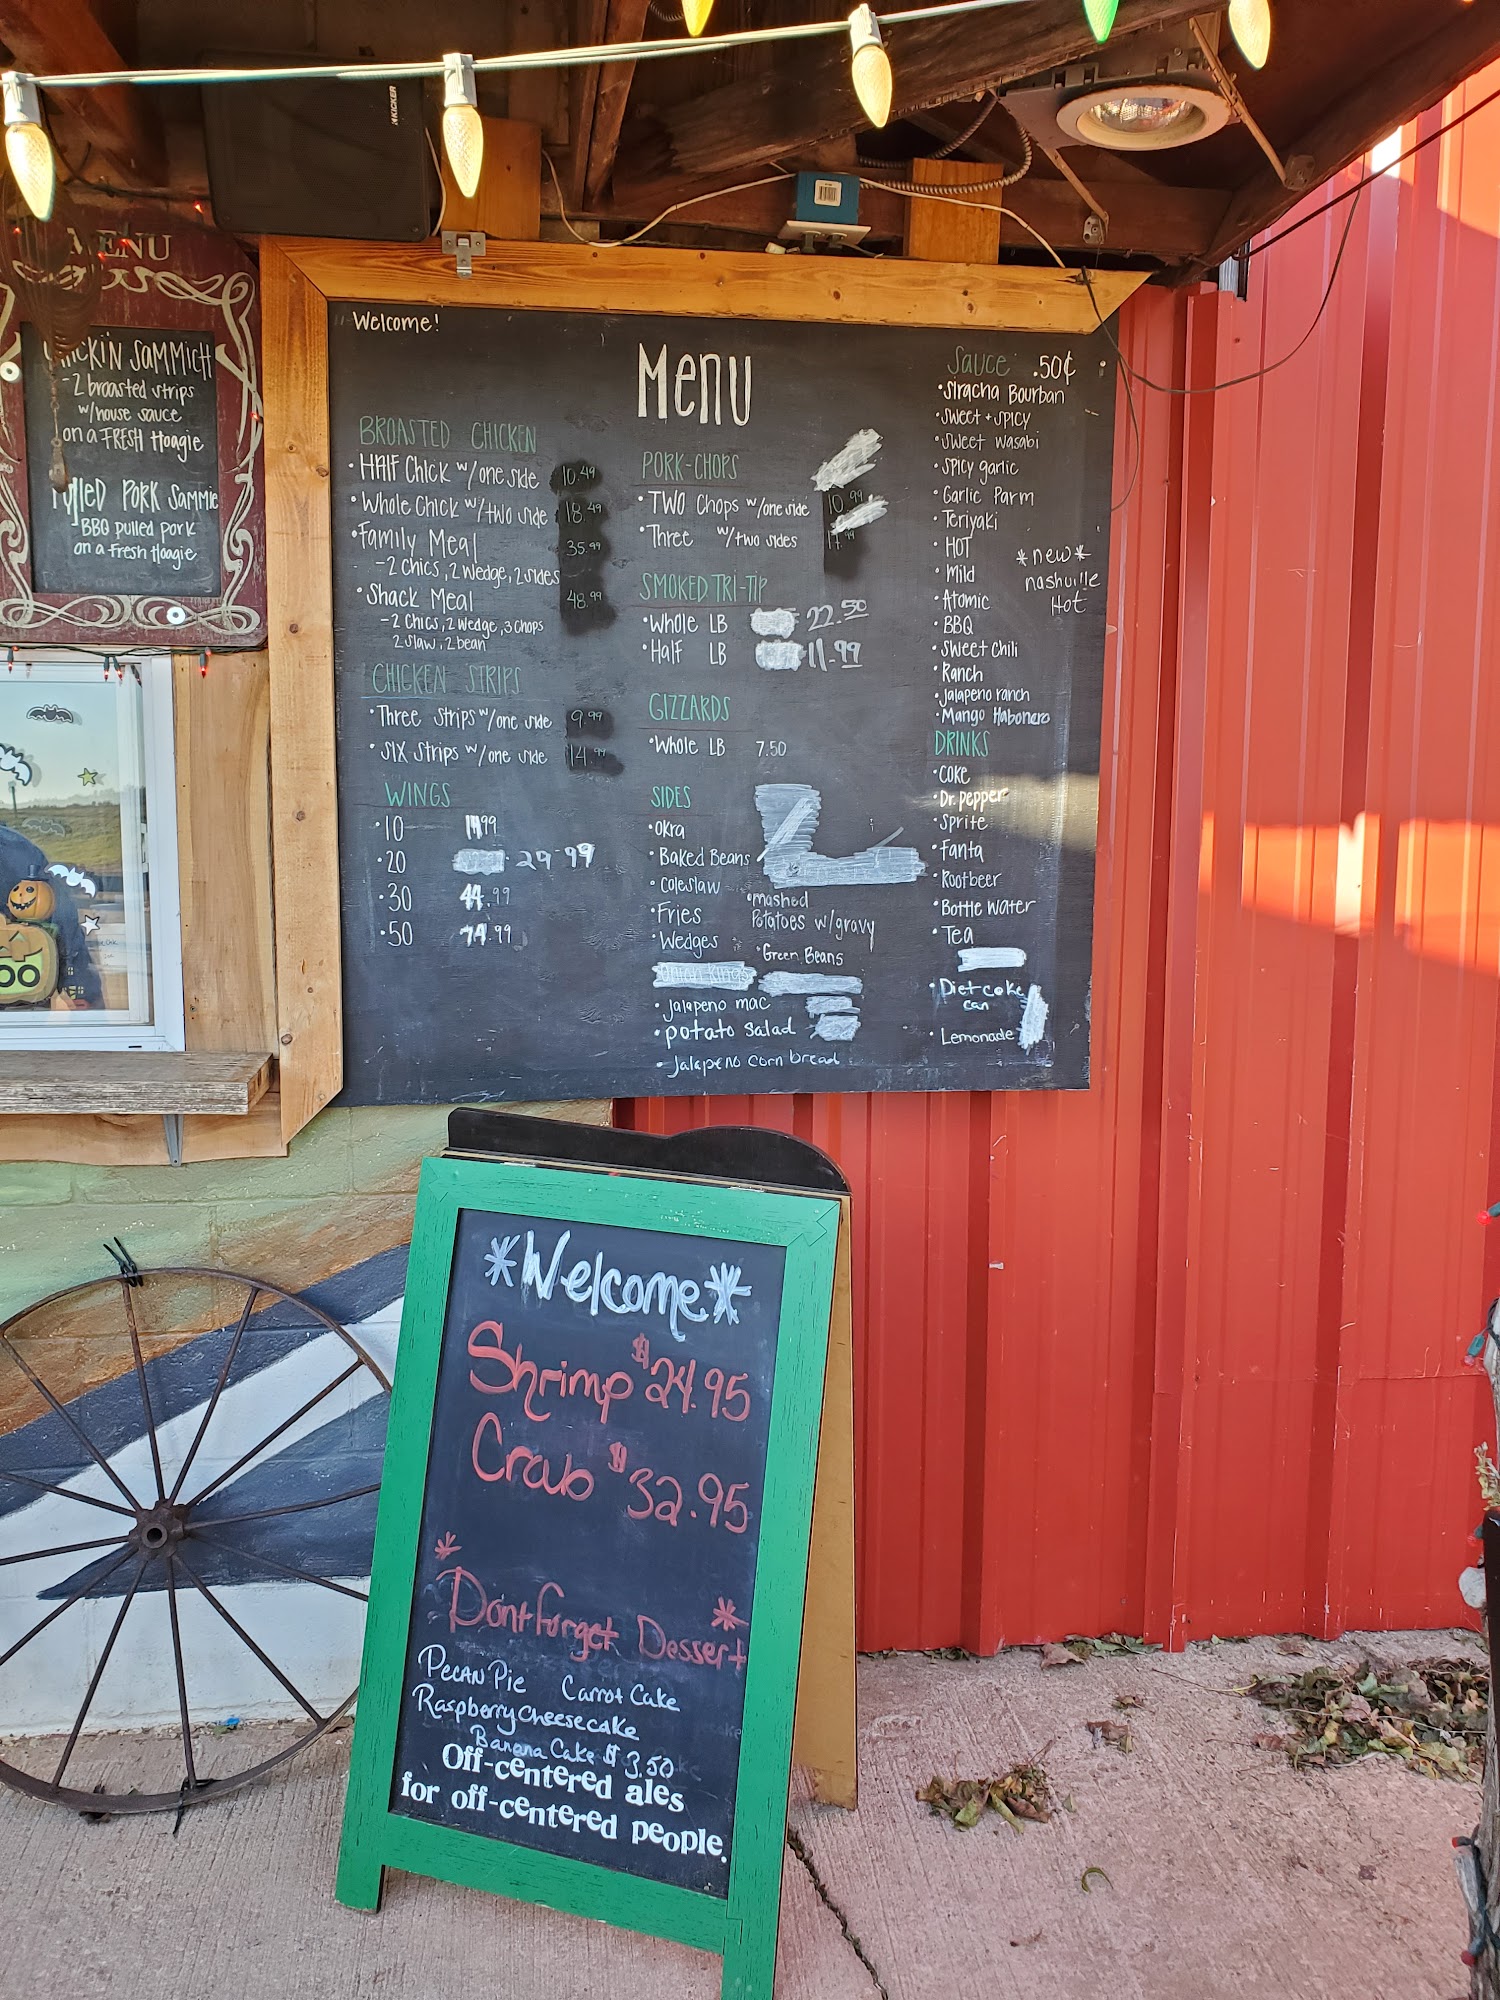 KICKER
MENU
CHICKIN SAMMICH
-2 broasted strips
w/house sauce
on a FRESH Hoagie
Pulled PORK Sammie
BBQ pulled pork
on a Fresh Hoagie
Welcome!
Menu
BROASTED CHICKEN
•HAlF Chick w/one side 10.49
•Whole Chick w/two side 18.49
•Family Meal 35.99
-2 chics, 2 wedge, 2 sides
•Shack Meal 48.99
-2 chics, 2 wedge, 3 chops
2 slaw, 2 bean
CHICKEN STRIPS
•Three strips w/one side 9.99
•SIX strips w/one side 14.99
WINGS
•10 .99
•20 29.99
•30 44.99
•50 74.99
PORK-CHOPS
•TWO Chops w/one side 10.99
•Three w/two sides .99
SMOKED TRI-TIP
•Whole LB 22.50
•Half LB 11.99
GIZZARDS
•Whole LB 7.50
SIDES
•okra
•Baked Beans
•coleslaw
•Fries
•Wedges
•mashed
Potatoes w/gravy
•Green Beans
Onion Rings
•jalapeno mac
•potato salad
•Jalapeno corn bread
Sauce .50¢
•Siracha Bourban
•sweet + SPICY
•sweet wasabi
•spicy garlic
•Garlic Parm
•Teriyaki
•HOT
•Mild
•Atomic
•BBQ
•sweet chili
•Ranch
•Jalapeno ranch
•Mango Habonero
*new*
nashville
Hot
DRINKS
•COKE
•Dr. pepper
•Sprite
•Fanta
•Rootbeer
•Bottle water
•Tea
•Diet coke
can
•Lemonade
BOO
*Welcome*
Shrimp $24.95
Crab $32.95
*Dont forget Dessert*
Pecan Pie Carrot Cake
Raspberry cheesecake
Banana Cake $3.50
Off-centered ales
for off-centered people.